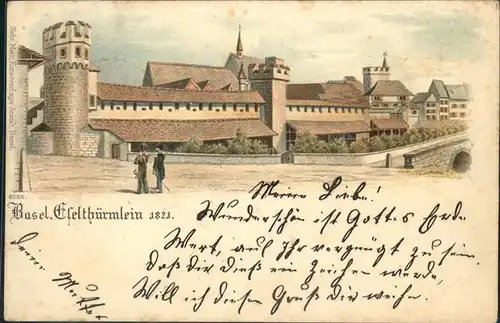 Basel, Eselthürmlein 1821.
8022.
Meine Liebe!
Wunderschön ist Gottes Erde
Wert, auf Ihr vergnügt zu sein.
Daß dir dieß ein Zeichen werde,
Will ich diesen Gruß Dir weihn.
Deine